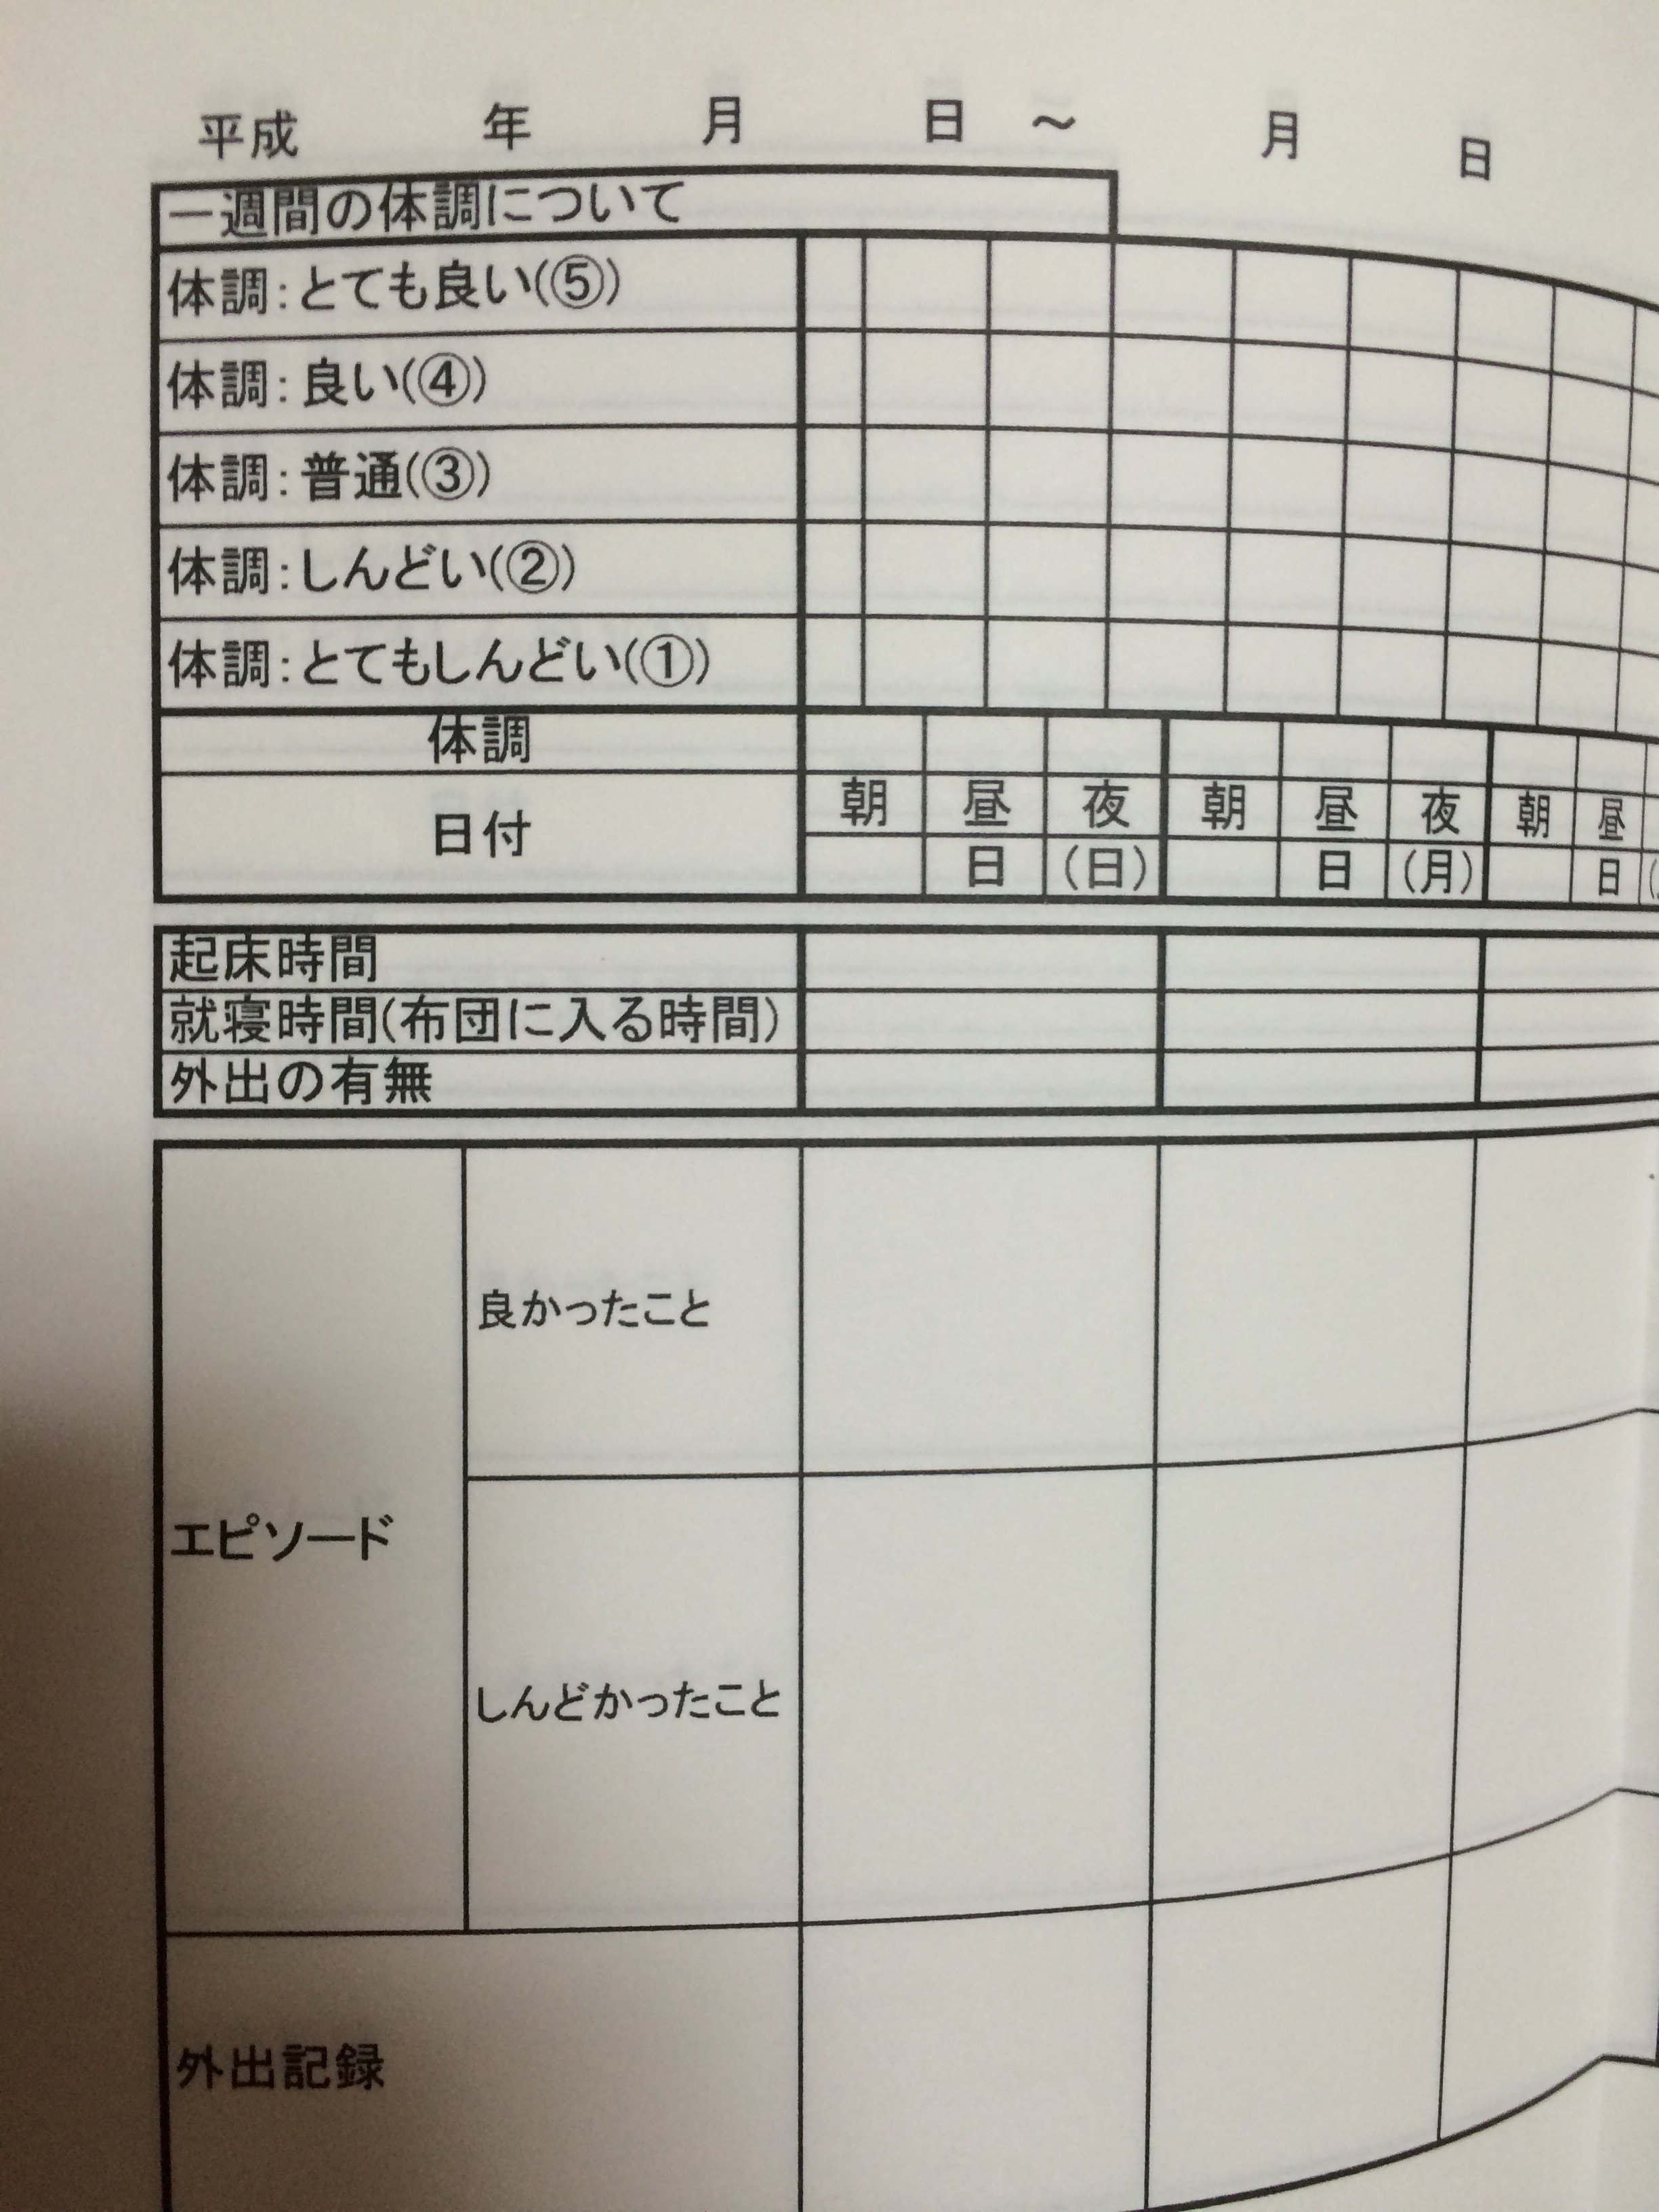 平成 年 月 日 ～ 月 日
一週間の体調について
体調：とても良い(⑤)
体調：良い(④)
体調：普通(③)
体調：しんどい(②)
体調：とてもしんどい(①)
体調
日付
朝 昼 夜 朝 昼 夜 朝 昼
日 (日) 日 (月) 日
起床時間
就寝時間(布団に入る時間)
外出の有無
エピソード
良かったこと
しんどかったこと
外出記録